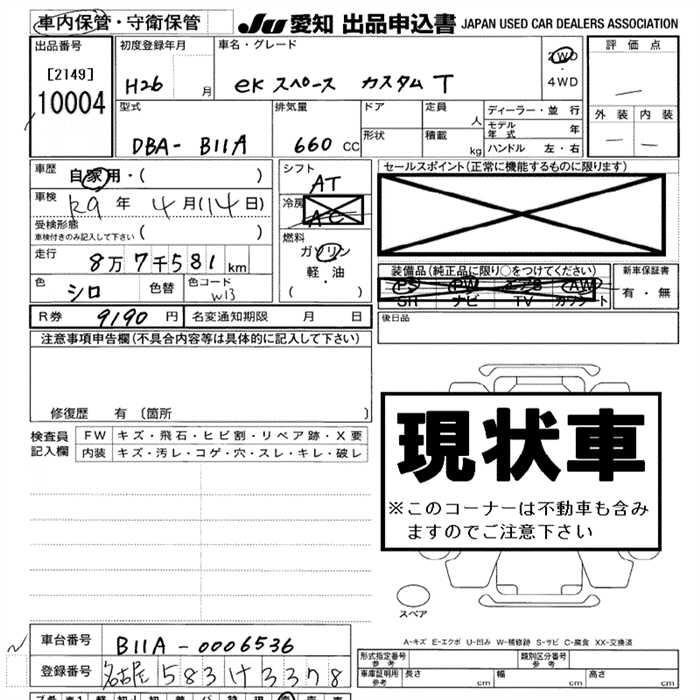 車内保管・守衛保管
JU 愛知 出品申込書 JAPAN USED CAR DEALERS ASSOCIATION
出品番号
[2149]
10004
初度登録年月
H26 月
車名・グレード
eK スペース カスタム T
2WD
・
4WD
評価点
—
外装 内装
— —
型式
DBA- B11A
排気量
660 CC
ドア
形状
定員
人
積載
kg
ディーラー・並行
モデル年式 年
ハンドル 左・右
車歴
自家用・( )
車検
R9 年 4 月(14 日)
受検形態
車検付きのみ記入して下さい ( )
走行
8万7千581km
色
シロ
色替
色コード
W13
シフト
AT
冷房
AC
燃料
ガソリン
軽・油
・( )
セールスポイント(正常に機能するものに限ります)
装備品(純正品に限り○をつけてください)
PS PW エアB AW
SR ナビ TV カワシート
新車保証書
有・無
R券 9190 円
名変通知期限 月 日
後日品
注意事項申告欄(不具合内容等は具体的に記入して下さい)
修復歴 有 〔箇所
検査員
記入欄
FW キズ・飛石・ヒビ割・リペア跡・X要
内装 キズ・汚レ・コゲ・穴・スレ・キレ・破レ
現状車
※このコーナーは不動車も含み
ますのでご注意下さい
スペア
A-キズ E-エクボ U-凹み W-補修跡 S-サビ C-腐食 XX-交換済
車台番号
B11A-0006536
登録番号
名古屋 583 け 3378
形式指定番号
参考
類別区分番号
参考
車庫証明用
参考
長さ cm
幅 cm
高さ cm